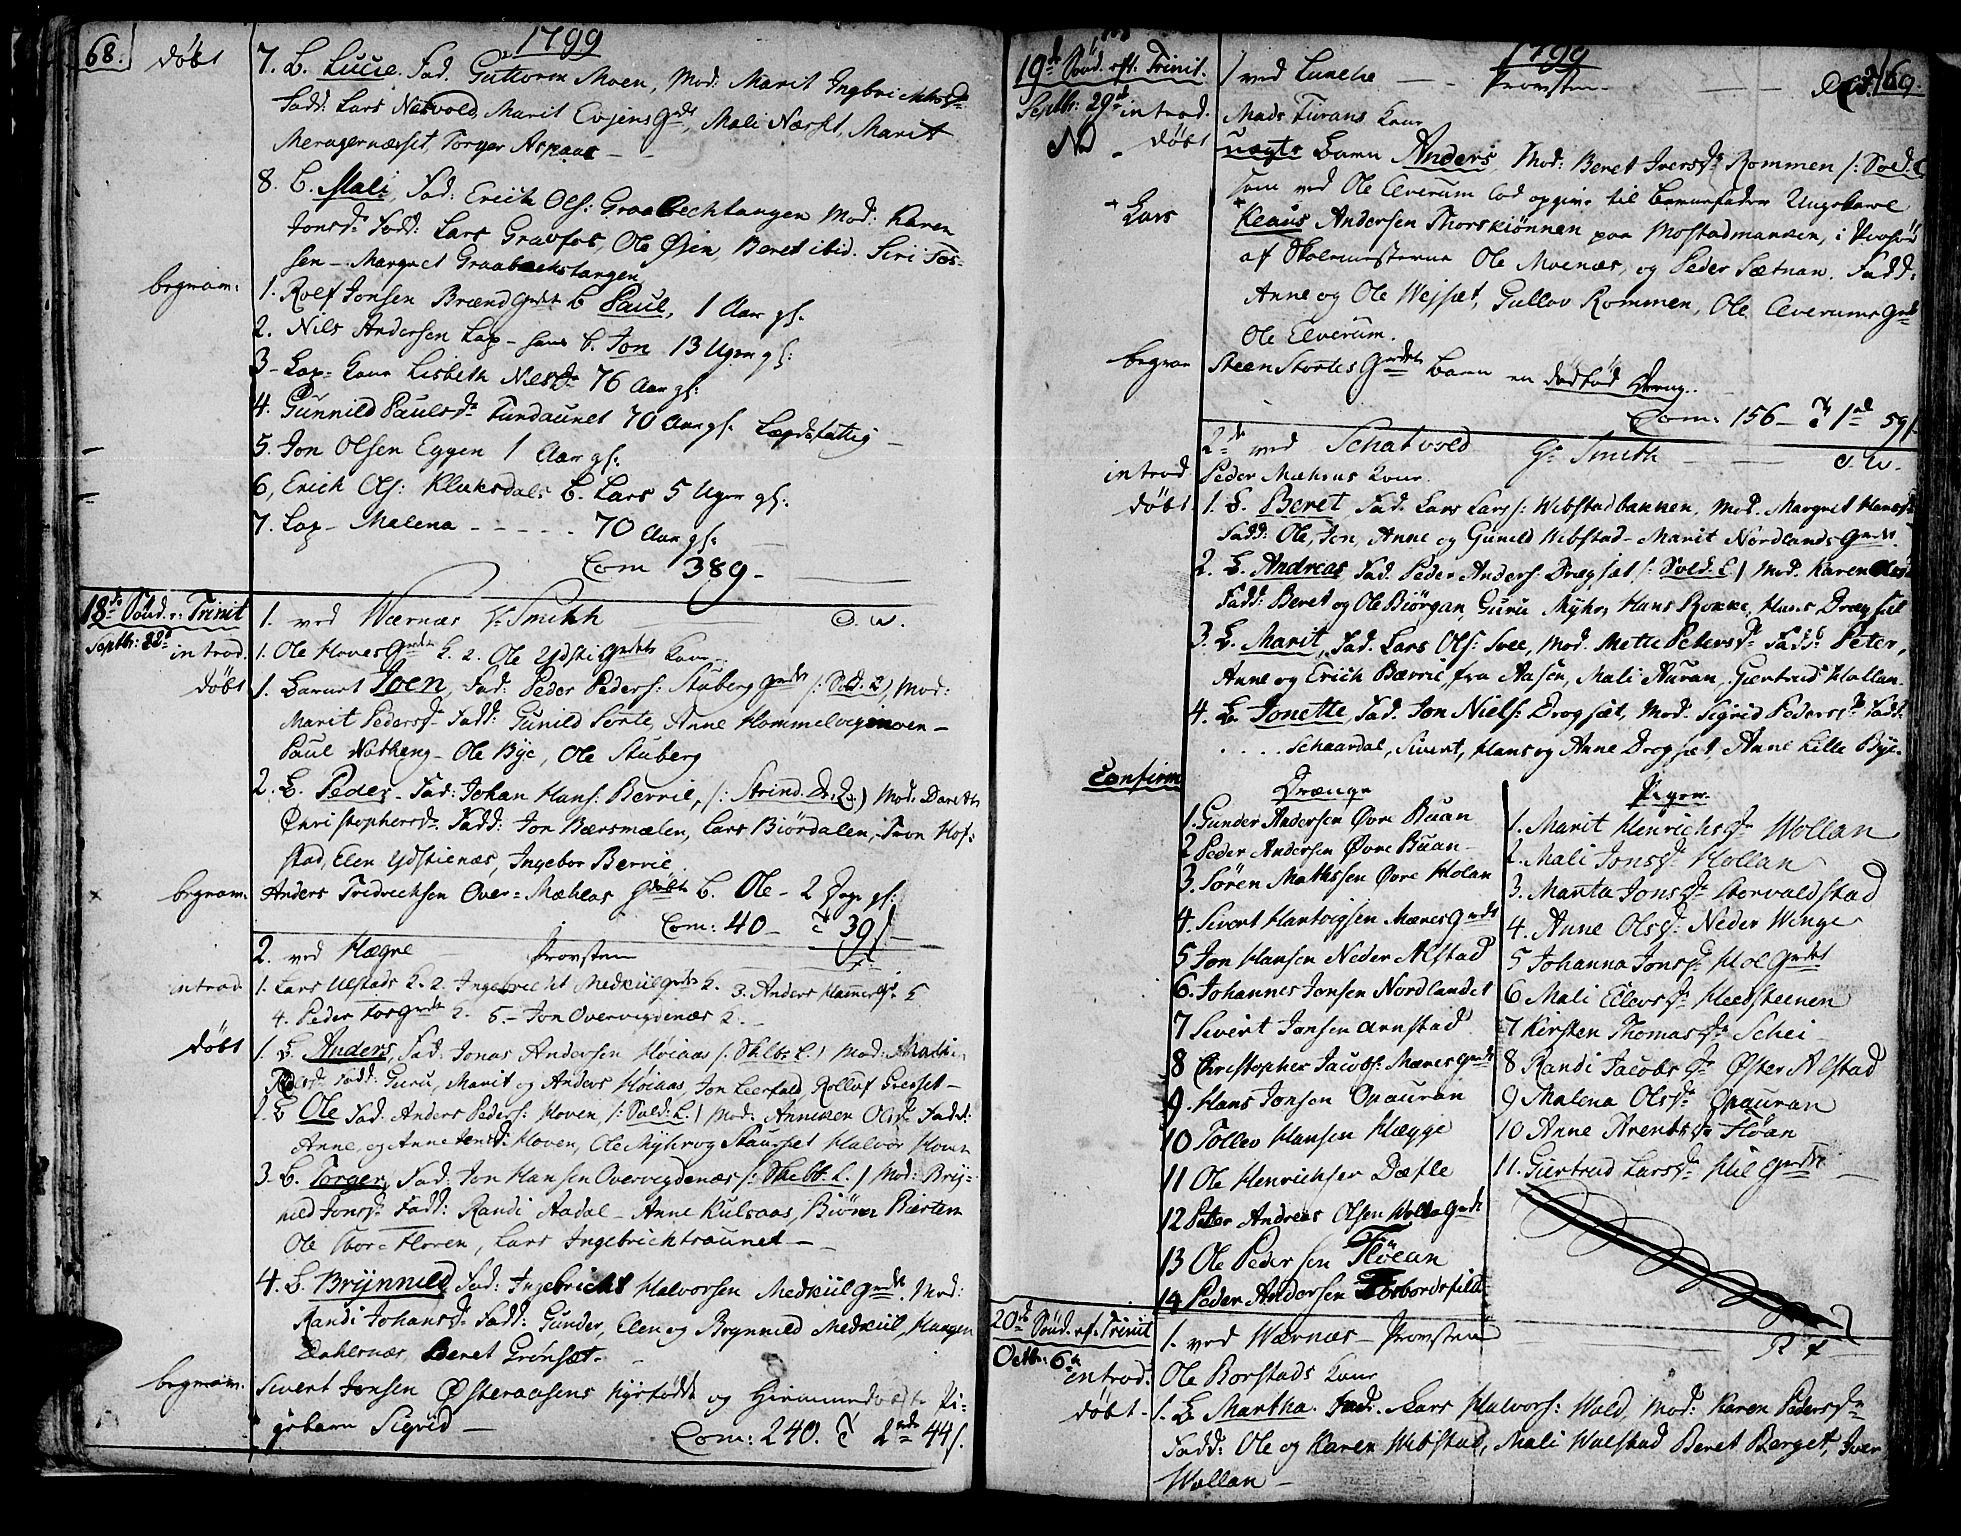 68.
1799
døbt
7. B. Lucie. Fad. Guttorm Moen, Mod: Marit Ingbrichtsd:
Fadd: Lars Nasvold, Marit Evjens Gd:, Mali Næsset, Marit
Meragernæsset, Torger Aspaas
8. B. Mali, Fad: Erich Ols: Graabechtangen Mod: Karen
Jonsd: Fadd: Lars Gravfos, Ole Øien, Beret ibid. Siri Fos-
sen - Margret Graabækstangen
begrav: 1. Rolf Jonsen Brænd Gdet B Paul, 1 Aar gl.
2. Nils Andersen Lap - hans b. Jon 13 Uger gl:
3- Lap- Kone Lisbeth Nilsd: 76 Aar gl:
4. Gunnild Paulsd: Fundaunet 70 Aar gl. Lægdsfattig
5. Jon Olsen Eggen 1 Aar gl.
6, Erich Ols: Kluksdals B. Lars 5 Uger gl:
7. Lap- Malena - - - - - 70 Aar gl:
Com 389-
18de Sønd. e. Trinit
Septbr: 22d
1. ved Wærnæs Hr Smith C. W.
introd. 1. Ole Hoves Gd: K. 2. Ole Ydsti Gdets Kone
døbt 1. Barnet Joen, Fad: Peder Peders: Stuberg Gdet /: Sold. L) Mod:
Marit Pedersd: Fadd: Gunild Sorte, Anne Hommelvigmoen -
Paul Notheng - Ole Bye, Ole Stuberg
2. B. Peder - Fad: Johan Hans: Berrie, /: Strind. Dr. L:) Mod: Dareth
Christophersd: Fadd: Jon Bærsmælen, Lars Biördalen, Iven Hof-
stad, Elen Ydstienæs, Ingebor Berrie,
begrav. Anders Fredrechsen Over-Mæhlas Gdets B. Ole - 2 Dage gl:
Com: 40 - T 39 s.
2. ved Hægre - Provsten
introd 1. Lars Ulstads K. 2. Ingebricht Medkiil Gd: K. 3. Anders Hamer Gd: K
4. Peder Fos Gdets K. 5- Jon Overvigdenæs K.
døbt 1. B Anders, Fad: Jonas Andersen Høiaas /: Sklb: L.) Mod: Mali
Fadd: Guru, Marit og Anders Høiaas, Jon Leerfald, Rolluf Græsset-
2. B Ole Fad. Anders Peders: Hoven, /: Sold: L.) Mod: Anneken Olsd: Fadd:
Anne, og Anne Jensd: Hoven, Ole Myhr og Stuusset Halvor Hoven
3. B. Torger, Fad: Jon Hansen Overvigdenæs /: Skelb: L.) Mod: Bry-
nild Jonsd: Fadd: Randi Aadal - Anne Kulsaas, Biörn Biertem
Ole Floren, Lars Ingebrichtsaunet -
4. B. Brynnild Fad: Ingebricht Halvorsen Medkiil Gdet. Mod:
Randi Johansd: Fadd: Gunder, Elen og Brynnild Medkiil, Haagen
Dahlernæs, Beret Grönsæt.
begrav. Sivert Jonsen Østeraasens Nyefødde og Hiemmedøbte Pi-
gebarn Sigrid -
Com: 240. T 2 44 s.
69.
1799
19de Sønd. eft. Trinit.
Septbr: 29d
ved Lanche - Provsten -
introd. Mads Turans Kone
døbt uægte Barn Anders, Mod: Beret Iversd: Rommen /: Sold: L
som ved Ole Elverum lod opgive til Barnefader Ungekarl
Klaus Andersen Thorskiönnen paa Mostadmarken, i Overvær
Lars
af Skolemesterne Ole Moenæs, og Peder Sætnan. Fadd:
Anne og Ole Wejsæt, Gullov Rommen, Ole Elverums Gd:
Ole Elverum.
begrav Steen Stortes Gdets Barn en dødfød Dreng.
Com: 156 - T 1 59 s.
2de ved Schatvold Hr Smith - C. W.
introd Peder Mæhrus Kone.
døbt. 1. B. Beret Fad. Lars Lars: Wibstadbakken, Mod. Margret Hansd:
Fadd: Ole, Jon, Anne og Gunild Wibstad - Marit Nordlands Gdet.
2. B. Andreas Fad. Peder Anders: Drægsæt /: Sold. L) Mod. Karen Olsd
Fadd: Beret og Ole Biörgan, Guru Myhr, Hans Rokke, Hans Drægset
3. B. Marit, Fad. Lars Ols: Svee, Mod. Mette Petersd: Fadd: Peter,
Anne og Erich Bærrie, fra Aasen, Mali Auran, Giertrud Hollan.
4. B. Jonette, Fad. Jon Niels: Drogsæt, Mod. Sigrid Pedersd: Fadd:
. . . . Schaardal, Sivert, Hans og Anne Drogsæt, Anne Lille Bye.
Confirm
Drænge
1. Gunder Andersen Øvre Buan
2 Peder Andersen Øvre Buan
3. Sören Mathssen Øvre Holan
4. Sivert Hartvigsen Mæres Gdet
5 Jon Hansen Neder Alstad
6. Johannes Jonsen Nordlandet
7 Sivert Jonsen Arnstad
8 Christopher Jacobs: Mæres Gdet
9. Hans Jonsen Opauran
10 Tollev Hansen Hægge
11 Ole Henrichser Dæfle
12 Peter Andreas Olsen Wolla Gdet
13 Ole Pedersen Flöean
14 Peder Andersen Forbordsfildt
Piger.
1. Marit Henrichsd: Wollan
2. Mali Jonsd: Hollan
3. Marita Jonsd: Storvaldstad
4. Anne Olsd: Neder Winge
5 Johanna Jonsd: Hol Gdet
6 Mali Ellevsd: Meedsteenen
7 Kirsten Thomasd: Schei
8 Randi Jacobsd: Øster Alstad
9 Malena Olsd: Opauran
10 Anne Arentsd: Flöan
11. Giertrud Larsd: Hil Gdet
20de Sønd. ef. Trinit
Octbr: 6te
1. ved Wærnæs - Provsten
introd: Ole Borstads Kone
døbt. 1. B Martha. Fad. Lars Halvors: Wold, Mod: Karen Pedersd:
Fadd: Ole og Karen Wibstad, Mali Walstad Beret Berget, Iver
Wollan -